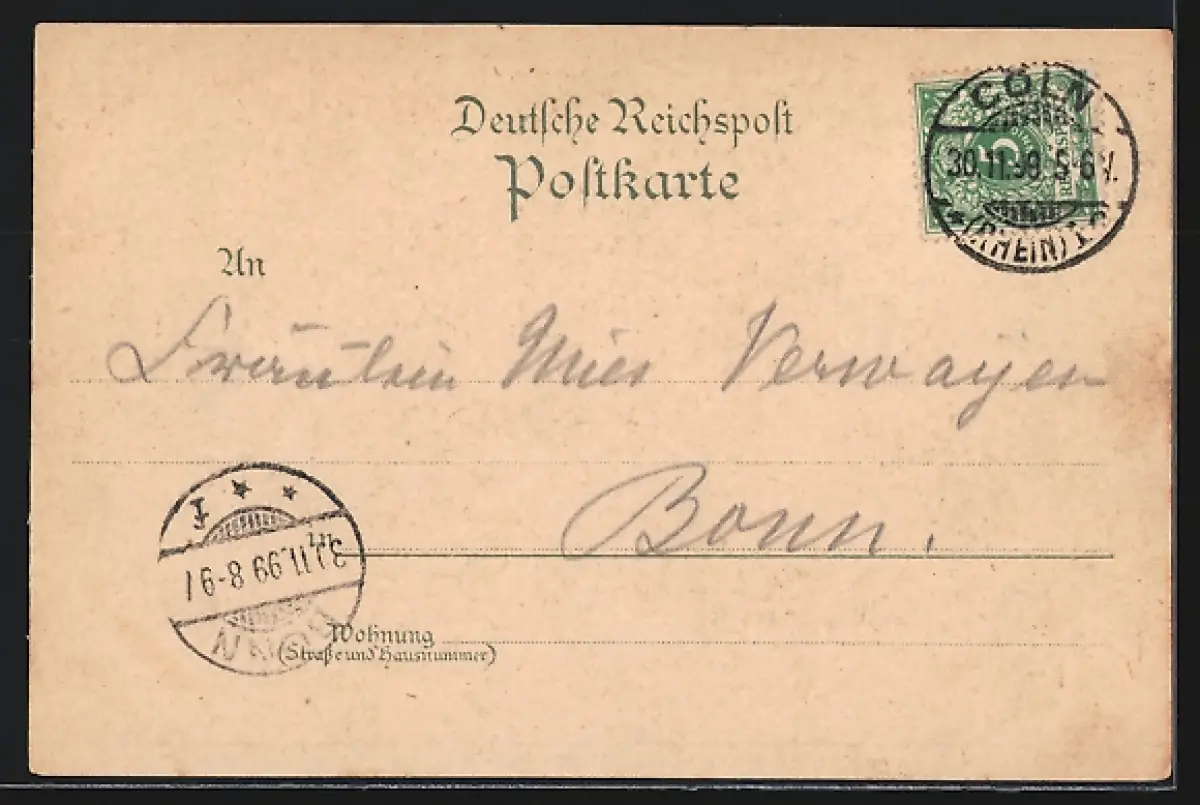 Deutsche Reichspost
Postkarte
CÖLN
30.11.99 5-6 V.
(RHEIN) 1
5
An
Fräulein Mies Verwayen
Bonn.
8-9
BONN
Wohnung
(Straße und Hausnummer)